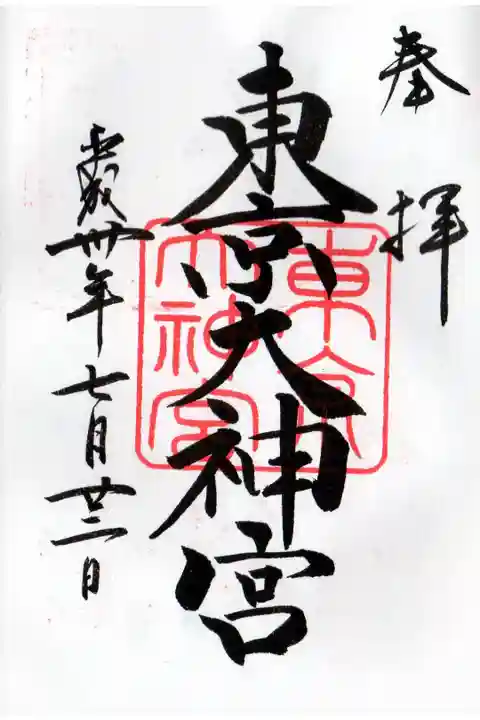 奉拝
東京大神宮
東京
大神宮
平成卅年七月廿二日